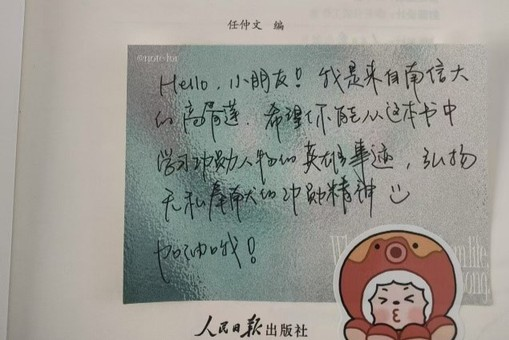 任仲文 编
©note-for
Hello，小朋友！我是来自南信大
的高荷莲，希望你能从这本书中
学习功勋人物的英雄事迹，弘扬
无私奉献的功勋精神
加油哦！
人民日报出版社